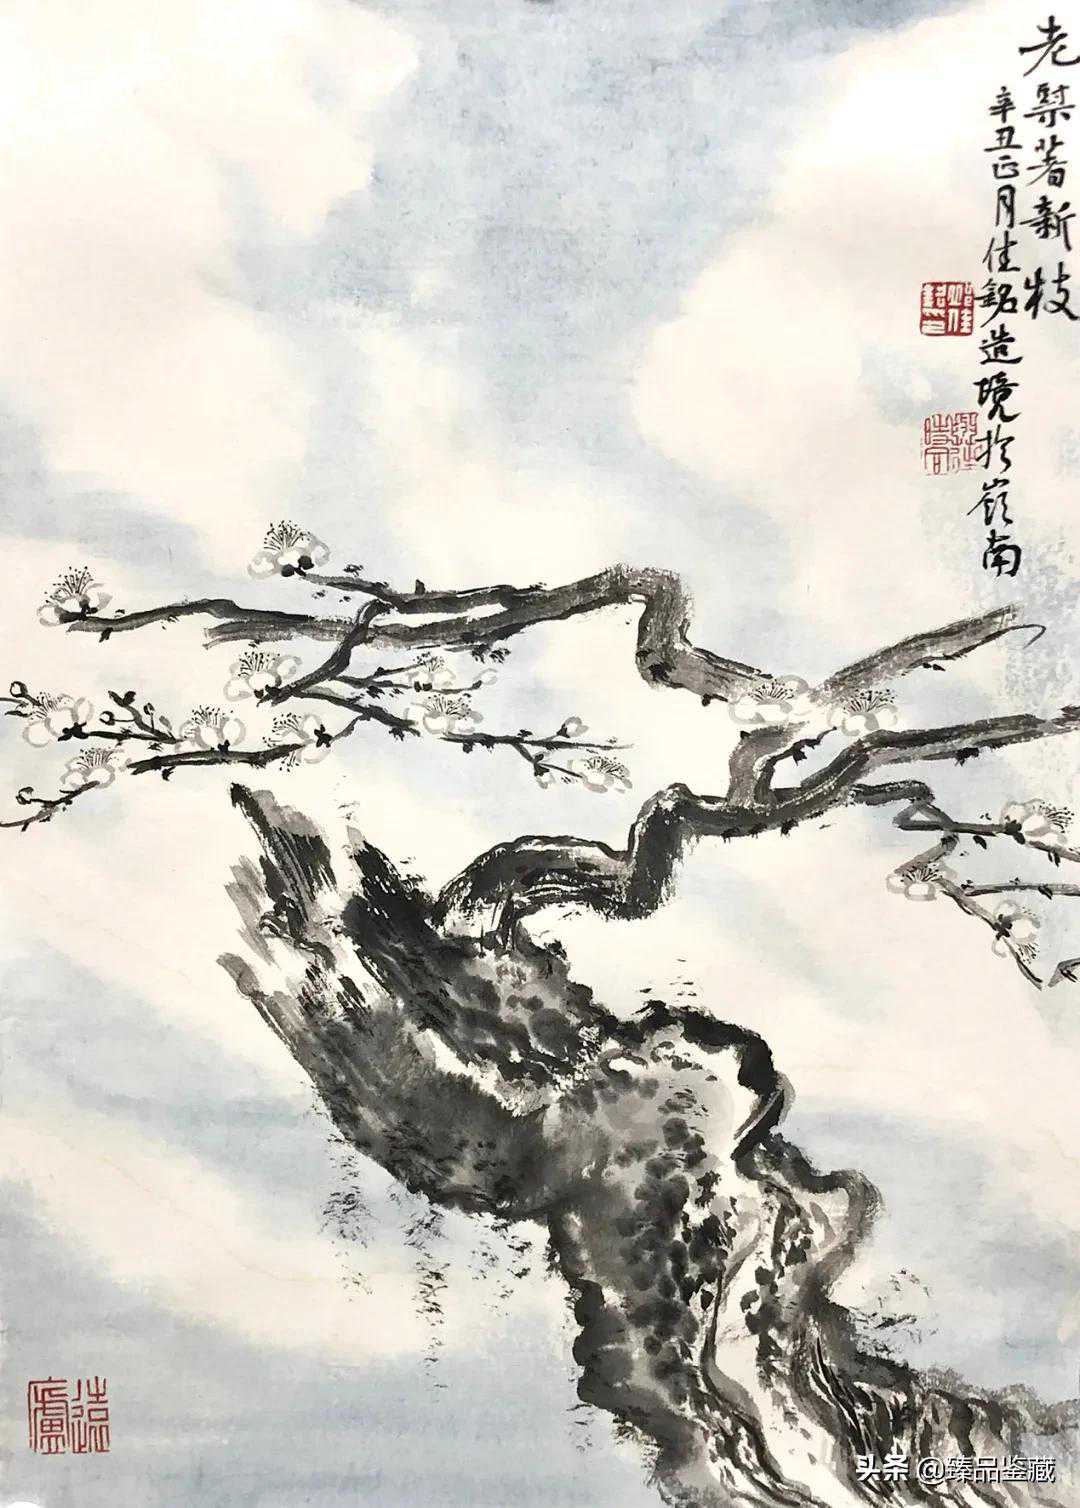 老著新枝
辛丑正月佳銘造境於嶺南
遠廬
头条 @臻品鉴藏